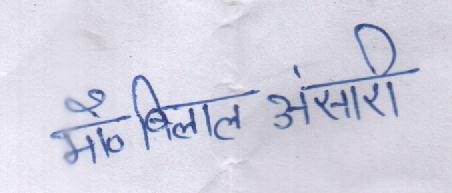 मो० बिलाल अंसारी